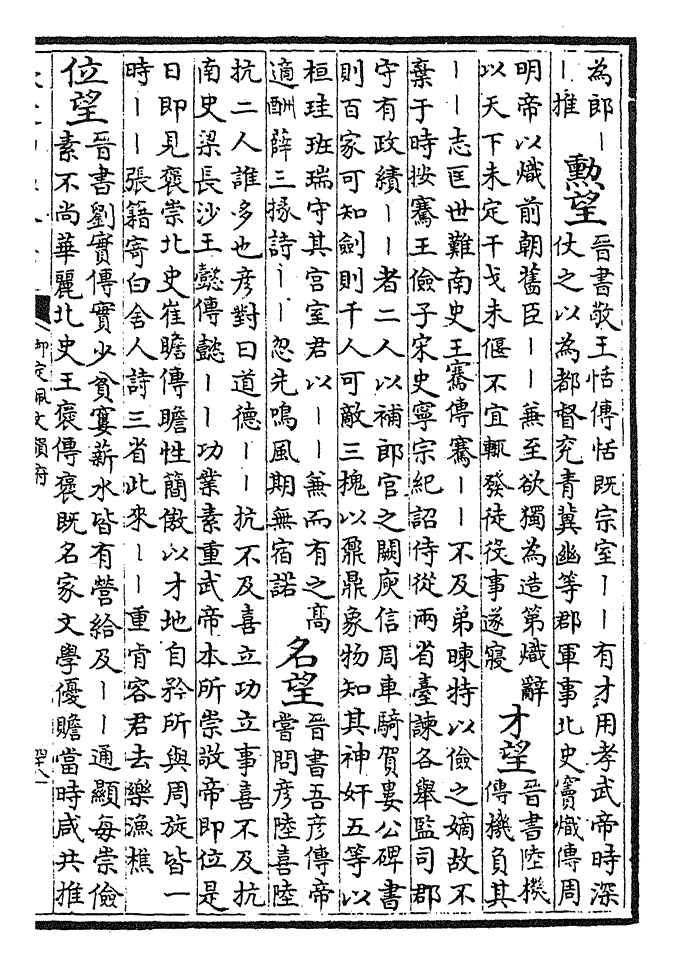 為郎丨
丨推
勲望
晉書敬王恬傳恬既宗室丨丨有才用孝武帝時深
仗之以為都督兖青冀幽等郡軍事北史竇熾傳周
明帝以熾前朝舊臣丨丨兼至欲獨為造第熾辭
以天下未定干戈未偃不宜輒發徒役事遂寢
才望
晉書陸機
傳機負其
丨丨志匡世難南史王騫傳騫丨丨不及弟暕特以儉之嫡故不
棄于時按騫王儉子宋史寧宗紀詔侍從兩省臺諫各舉監司郡
守有政績丨丨者二人以補郎官之闕庾信周車騎賀婁公碑書
則百家可知劍則千人可敵三槐以鼐鼎象物知其神奸五等以
桓珪班瑞守其宫室君以丨丨兼而有之高
適酬薛三掾詩丨丨忽先鳴風期無宿諾
名望
晉書吾彦傳帝
嘗問彦陸喜陸
抗二人誰多也彦對曰道德丨丨抗不及喜立功立事喜不及抗
南史梁長沙王懿傳懿丨丨功業素重武帝本所崇敬帝即位是
日即見褒崇北史崔瞻傳瞻性簡傲以才地自矜所與周旋皆一
時丨丨張籍寄白舍人詩三省此來丨丨重肯容君去樂漁樵
位望
晉書劉實傳實少貧窶薪水皆有營給及丨丨通顯每崇儉
素不尚華麗北史王褒傳褒既名家文學優贍當時咸共推
御定佩文韻府